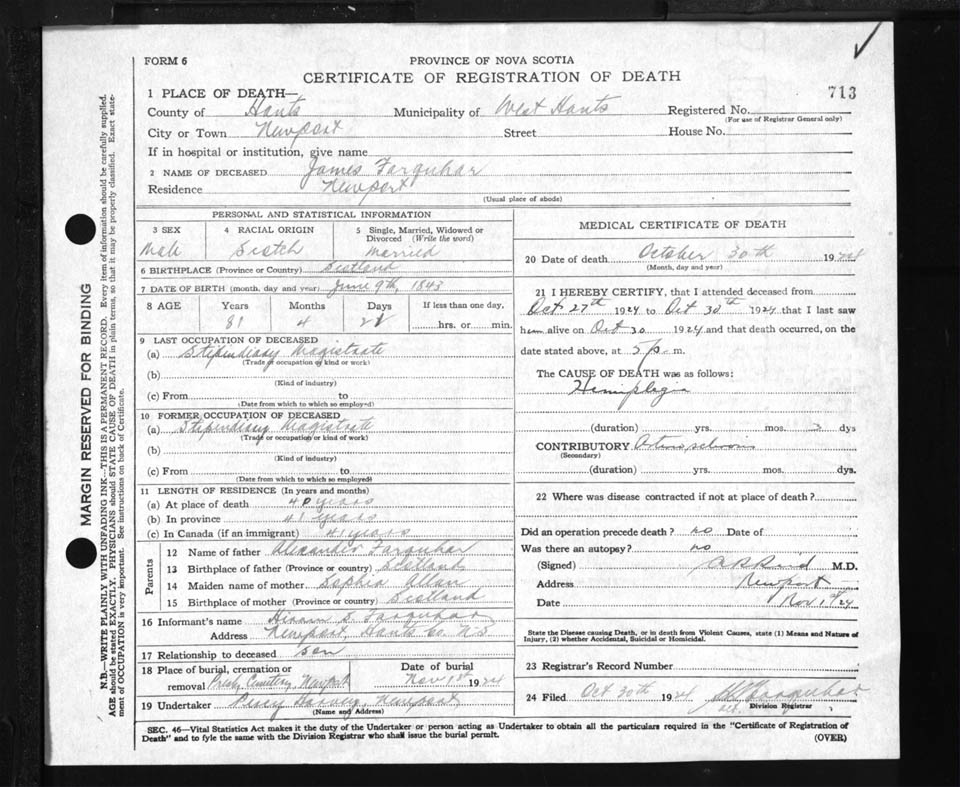 FORM 6
PROVINCE OF NOVA SCOTIA
CERTIFICATE OF REGISTRATION OF DEATH
713
1 PLACE OF DEATH—
County of Hants Municipality of West Hants Registered No.
(For use of Registrar General only)
City or Town Newport Street House No.
If in hospital or institution, give name
2 NAME OF DECEASED James Farquhar
Residence Newport
(Usual place of abode)
PERSONAL AND STATISTICAL INFORMATION
3 SEX 4 RACIAL ORIGIN 5 Single, Married, Widowed or Divorced (Write the word)
Male Scotch Married
6 BIRTHPLACE (Province or Country) Scotland
7 DATE OF BIRTH (month, day and year) June 9th, 1843
8 AGE Years Months Days If less than one day,
81 4 hrs. or min.
9 LAST OCCUPATION OF DECEASED
(a) Stipendiary Magistrate
(Trade or occupation or kind or work)
(b)
(Kind of industry)
(c) From to
(Date from which to which so employed)
10 FORMER OCCUPATION OF DECEASED
(a) Stipendiary Magistrate
(Trade or occupation or kind of work)
(b)
(Kind of industry)
(c) From to
(Date from which to which so employed)
11 LENGTH OF RESIDENCE (In years and months)
(a) At place of death 40 years
(b) In province 41 years
(c) In Canada (if an immigrant) 41 years
Parents
12 Name of father Alexander Farquhar
13 Birthplace of father (Province or country) Scotland
14 Maiden name of mother Sophia Allan
15 Birthplace of mother (Province or country) Scotland
16 Informant's name Hiram S. Farquhar
Address Newport, Hants Co. N.S
17 Relationship to deceased son
18 Place of burial, cremation or removal Presby. Cemetery, Newport Date of burial Nov 1st 1924
19 Undertaker Percy Harvey, Newport
(Name and Address)
MEDICAL CERTIFICATE OF DEATH
20 Date of death October 30th 1924
(Month, day and year)
21 I HEREBY CERTIFY, that I attended deceased from
Oct 27th 1924 to Oct 30th 1924 that I last saw
him alive on Oct 30 1924 and that death occurred, on the
date stated above, at 5 p. m.
The CAUSE OF DEATH was as follows:
Hemiplegia
(duration) yrs. mos. 3 dys
CONTRIBUTORY
(Secondary)
(duration) yrs. mos. dys.
22 Where was disease contracted if not at place of death?
Did an operation precede death? no Date of
Was there an autopsy? no
(Signed) M.D.
Address Newport
Date Nov 1st 24
State the Disease causing Death, or in death from Violent Causes, state (1) Means and Nature of
Injury, (2) whether Accidental, Suicidal or Homicidal.
23 Registrar's Record Number
24 Filed Oct 30th 1924 Farquhar
Division Registrar
SEC. 46—Vital Statistics Act makes it the duty of the Undertaker or person acting as Undertaker to obtain all the particulars required in the "Certificate of Registration of
Death" and to fyle the same with the Division Registrar who shall issue the burial permit.
(OVER)
MARGIN RESERVED FOR BINDING
N.B.—WRITE PLAINLY WITH UNFADING INK—THIS IS A PERMANENT RECORD. Every item of information should be carefully supplied.
AGE should be stated EXACTLY. PHYSICIANS should STATE CAUSE OF DEATH in plain terms, so that it may be properly classified. Exact state-
ment of OCCUPATION is very important. See instructions on back of Certificate.